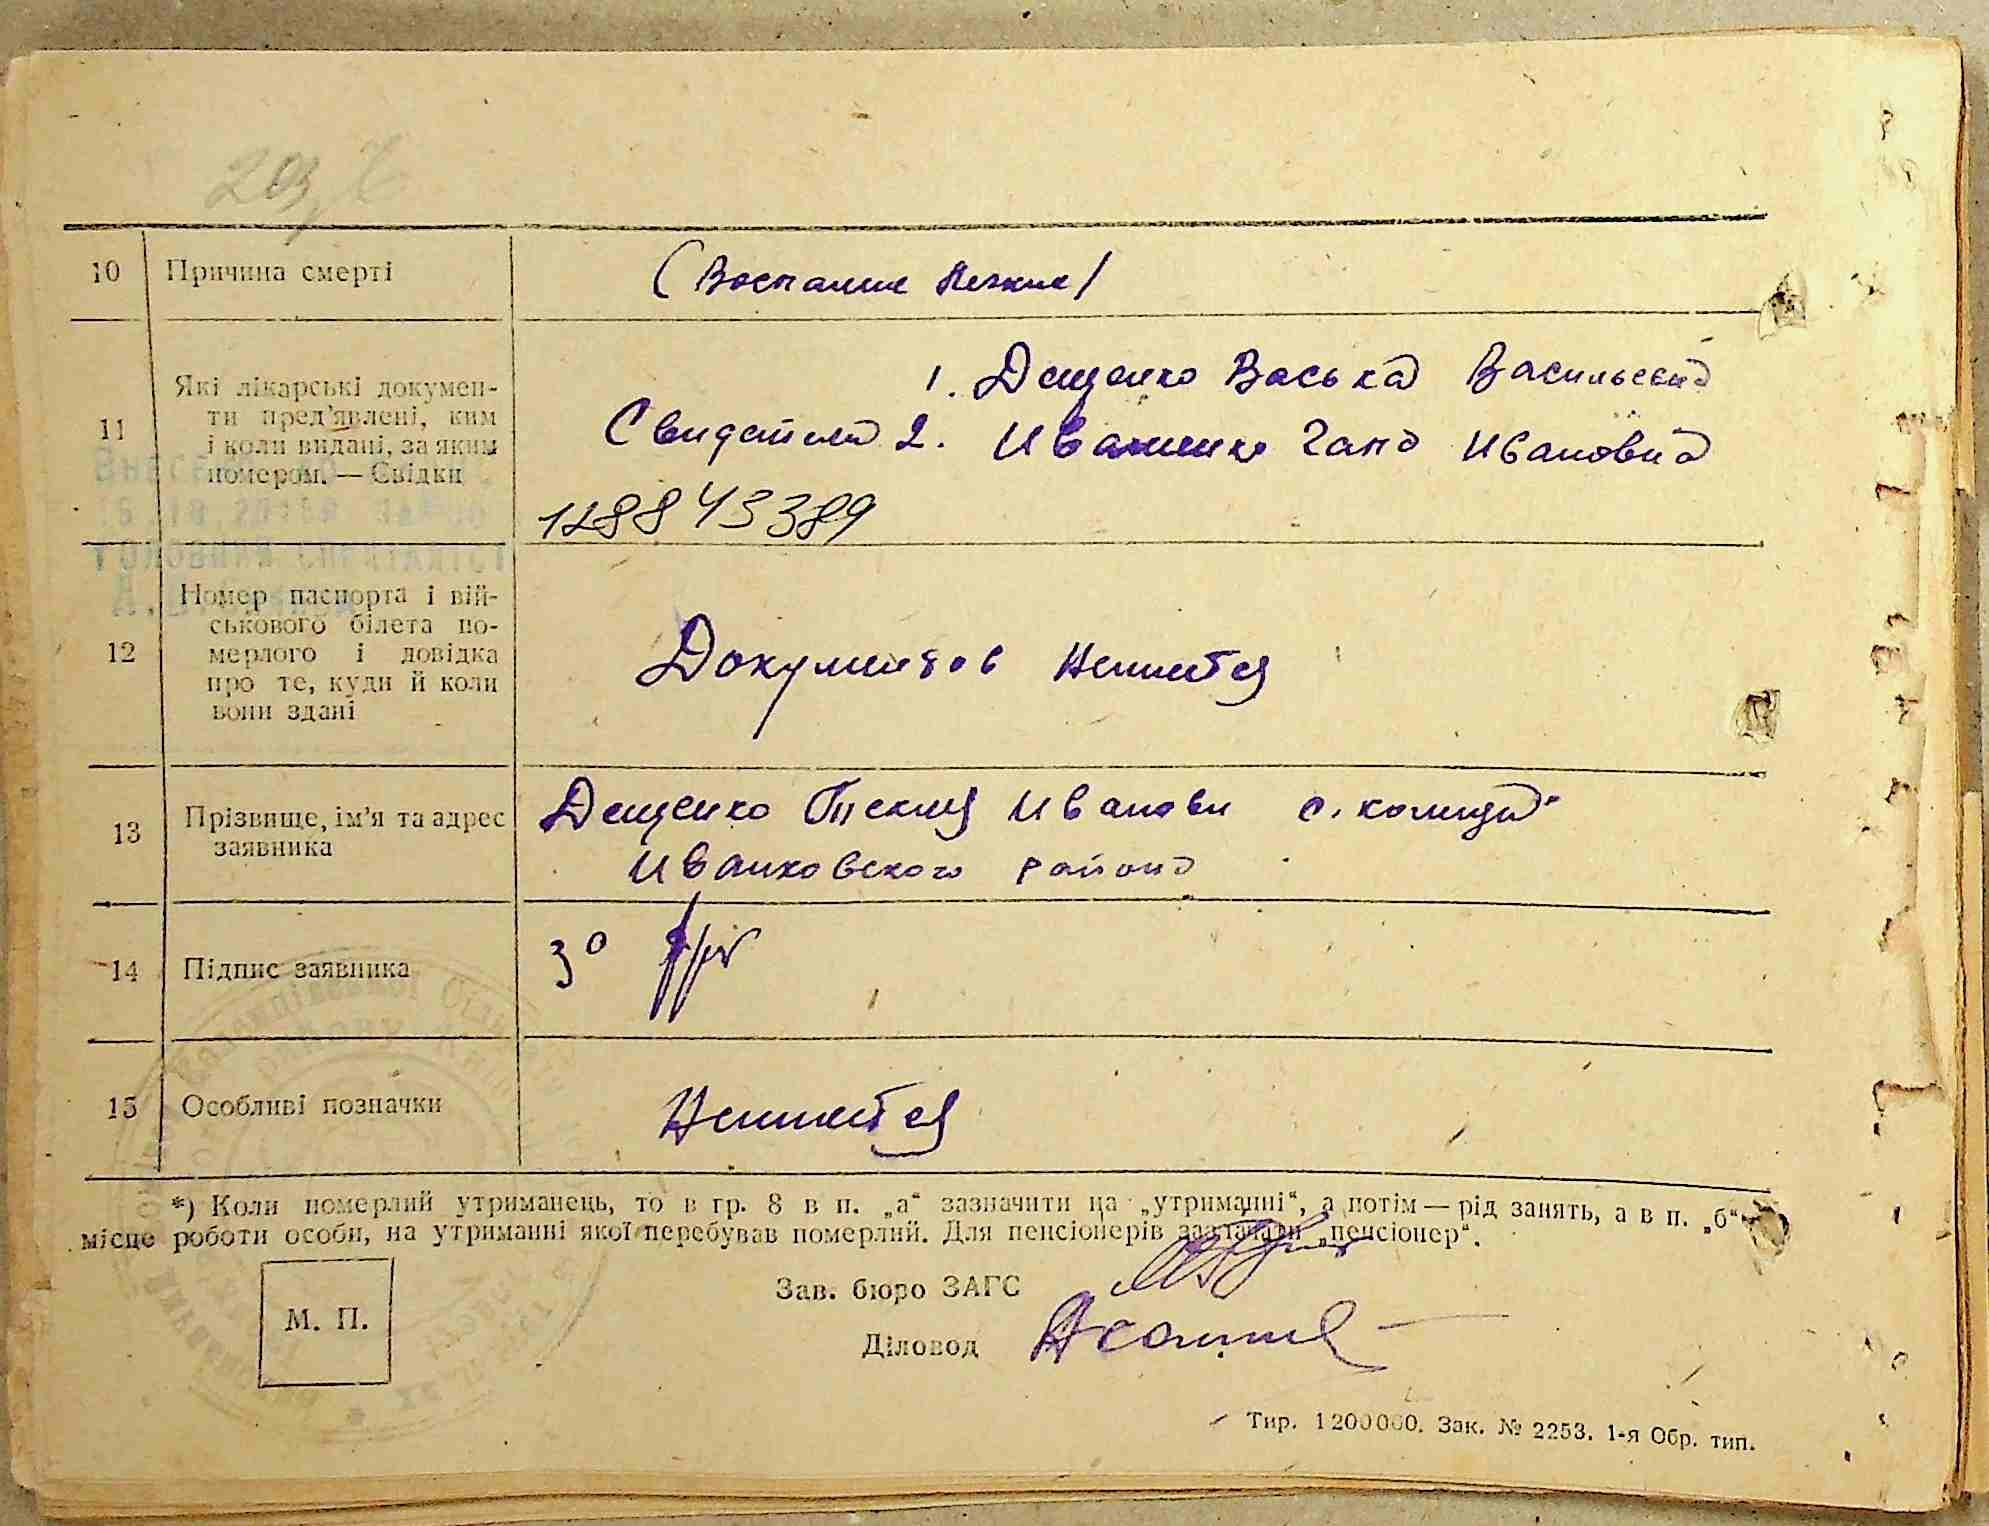 10 Причина смерті
(Воспалит Легких)
11 Які лікарські докумен-
ти пред'явлені, ким
і коли видані, за яким
номером. — Свідки
1. Дещенко Васька Васильевид
Свидетели 2. Иваненко Гапо Ивановид
12 Номер паспорта і вій-
ськового білета по-
мерлого і довідка
про те, куди й коли
вони здані
Документов Неимется
13 Прізвище, ім'я та адрес
заявника
Дещенко Текля Иванови с.
Иванковского район
14 Підпис заявника
15 Особливі позначки
Неимется
*) Коли померлий утриманець, то в гр. 8 в п. „а“ зазначити на „утриманні“, а потім — рід занять, а в п. „б“
місце роботи особи, на утриманні якої перебував померлий. Для пенсіонерів зазначати „пенсіонер“.
Зав. бюро ЗАГС
М. П.
Діловод
Тир. 1200000. Зак. № 2253. 1-я Обр. тип.